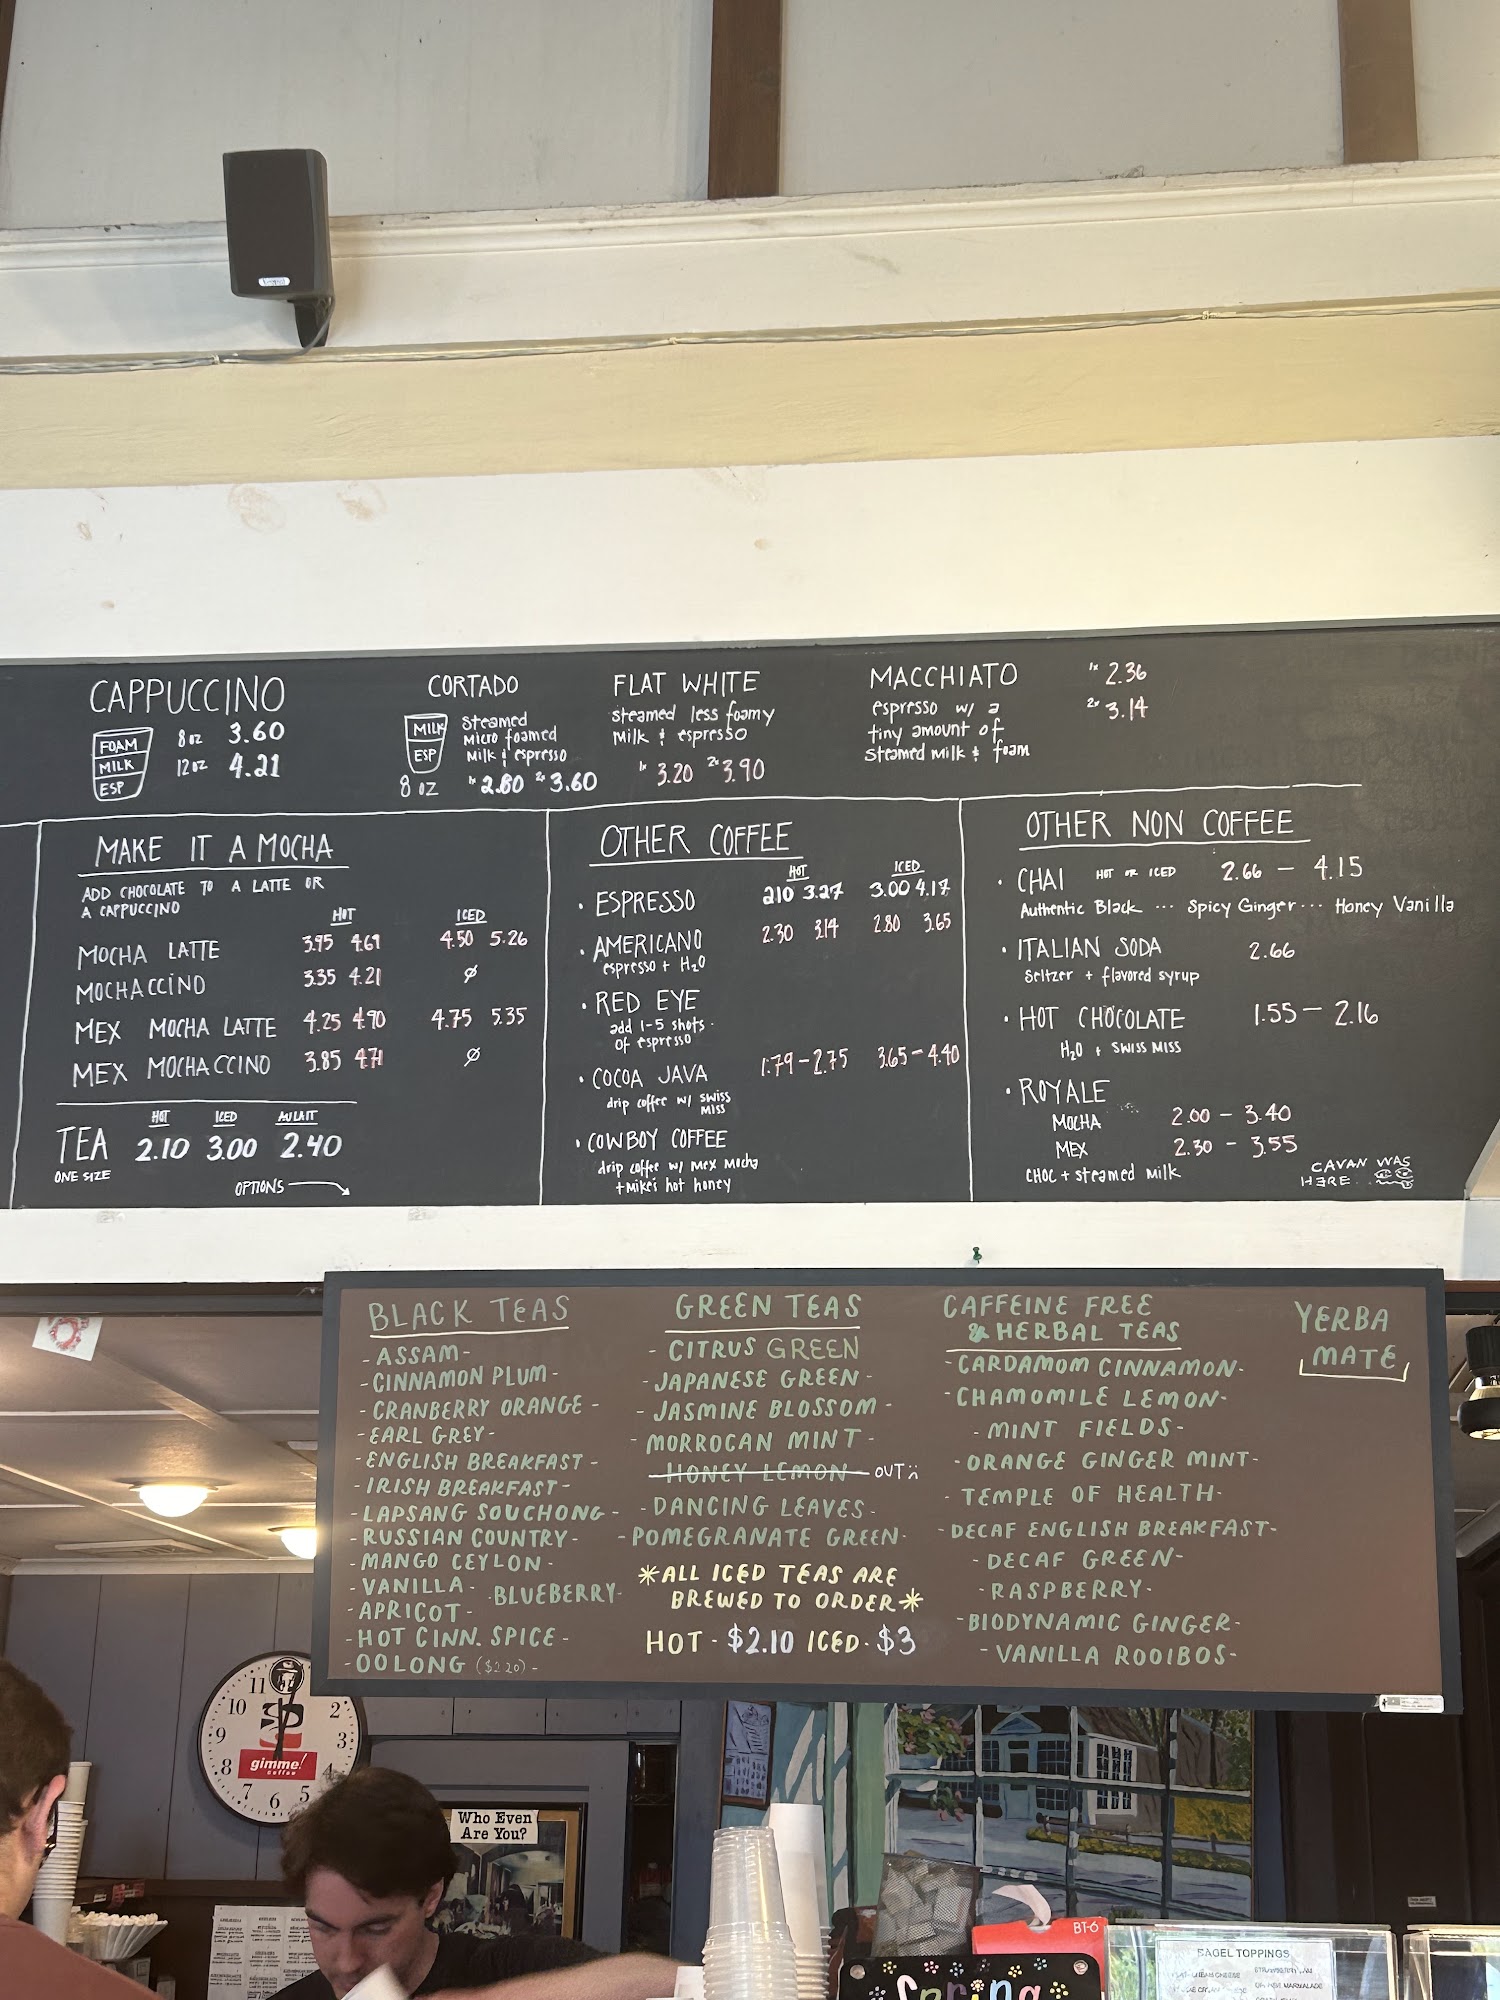 CAPPUCCINO
FOAM
MILK
ESP
8 oz 3.60
12 oz 4.21
CORTADO
MILK
ESP
8 OZ
Steamed
Micro foamed
Milk & espresso
1x 2.80 2x 3.60
FLAT WHITE
steamed less foamy
Milk & espresso
1x 3.20 2x 3.90
MACCHIATO
espresso w/ a
tiny amount of
Steamed milk & foam
1x 2.36
2x 3.14
MAKE IT A MOCHA
ADD CHOCOLATE TO A LATTE OR
A CAPPUCCINO
HOT ICED
MOCHA LATTE 3.95 4.69 4.50 5.26
MOCHACCINO 3.35 4.21 ø
MEX MOCHA LATTE 4.25 4.90 4.75 5.35
MEX MOCHACCINO 3.85 4.71 ø
HOT ICED AU LAIT
TEA 2.10 3.00 2.40
ONE SIZE
OPTIONS
OTHER COFFEE
HOT ICED
• ESPRESSO 2.10 3.27 3.00 4.17
• AMERICANO 2.30 3.14 2.80 3.65
espresso + H₂O
• RED EYE
add 1-5 shots
of espresso
• COCOA JAVA 1.79 - 2.75 3.65 - 4.40
drip coffee w/ SWISS
MISS
• COWBOY COFFEE
drip coffee w/ Mex Mocha
+ Mike's hot honey
OTHER NON COFFEE
• CHAI HOT OR ICED 2.66 - 4.15
Authentic Black ... Spicy Ginger ... Honey Vanilla
• ITALIAN SODA 2.66
Seltzer + flavored syrup
• HOT CHOCOLATE 1.55 - 2.16
H₂O + SWISS MISS
• ROYALE
MOCHA 2.00 - 3.40
MEX 2.30 - 3.55
CHOC + steamed milk
CAVAN WAS
HERE
BLACK TEAS
- ASSAM -
- CINNAMON PLUM -
- CRANBERRY ORANGE -
- EARL GREY -
- ENGLISH BREAKFAST -
- IRISH BREAKFAST -
- LAPSANG SOUCHONG -
- RUSSIAN COUNTRY -
- MANGO CEYLON -
- VANILLA - - BLUEBERRY -
- APRICOT -
- HOT CINN. SPICE -
- OOLONG ($2.20) -
GREEN TEAS
- CITRUS GREEN
- JAPANESE GREEN -
- JASMINE BLOSSOM -
- MORROCAN MINT -
- HONEY LEMON - OUT :(
- DANCING LEAVES -
- POMEGRANATE GREEN -
*ALL ICED TEAS ARE
BREWED TO ORDER*
HOT - $2.10 ICED - $3
CAFFEINE FREE
& HERBAL TEAS
- CARDAMOM CINNAMON -
- CHAMOMILE LEMON -
- MINT FIELDS -
- ORANGE GINGER MINT -
- TEMPLE OF HEALTH -
- DECAF ENGLISH BREAKFAST -
- DECAF GREEN -
- RASPBERRY -
- BIODYNAMIC GINGER -
- VANILLA ROOIBOS -
YERBA
MATE
11
10 2
9 3
8 4
7 6 5
gimme!
coffee
Who Even
Are You?
BT-6
BAGEL TOPPINGS
Spring